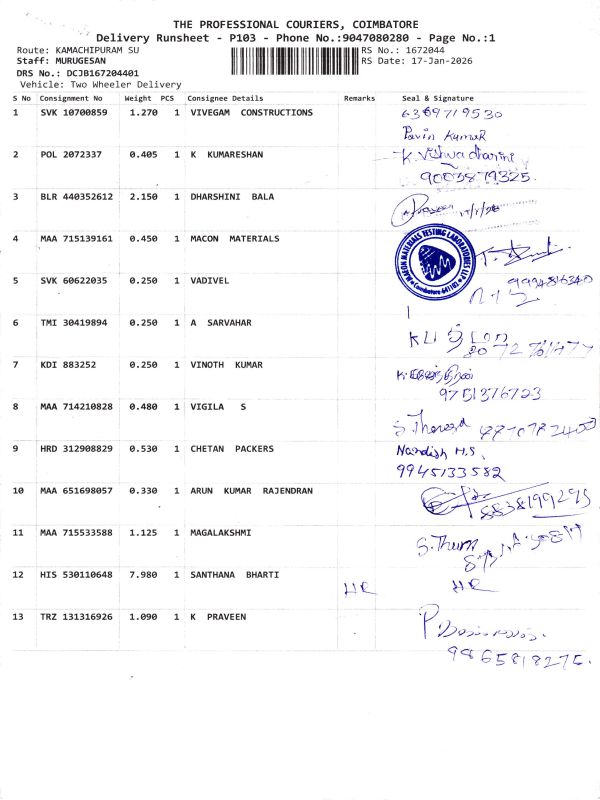 THE PROFESSIONAL COURIERS, COIMBATORE
Delivery Runsheet - P103 - Phone No.:9047080280 - Page No.:1
Route: KAMACHIPURAM SU RS No.: 1672044
Staff: MURUGESAN RS Date: 17-Jan-2026
DRS No.: DCJB167204401
Vehicle: Two Wheeler Delivery
S No Consignment No Weight PCS Consignee Details Remarks Seal & Signature
1 SVK 10700859 1.270 1 VIVEGAM CONSTRUCTIONS 6369719530
Pavin Kumar
2 POL 2072337 0.405 1 K KUMARESHAN K. Vishvadharini
9003879325.
3 BLR 440352612 2.150 1 DHARSHINI BALA 17/1/26
4 MAA 715139161 0.450 1 MACON MATERIALS MACON MATERIALS TESTING LABORATORIES LLP Coimbatore
5 SVK 60622035 0.250 1 VADIVEL
6 TMI 30419894 0.250 1 A SARVAHAR
7 KDI 883252 0.250 1 VINOTH KUMAR
9751376723
8 MAA 714210828 0.480 1 VIGILA S
9 HRD 312908829 0.530 1 CHETAN PACKERS Nandish M.S.
9945133582
10 MAA 651698057 0.330 1 ARUN KUMAR RAJENDRAN 8838199295
11 MAA 715533588 1.125 1 MAGALAKSHMI
12 HIS 530110648 7.980 1 SANTHANA BHARTI HR HR
13 TRZ 131316926 1.090 1 K PRAVEEN
9865818275.